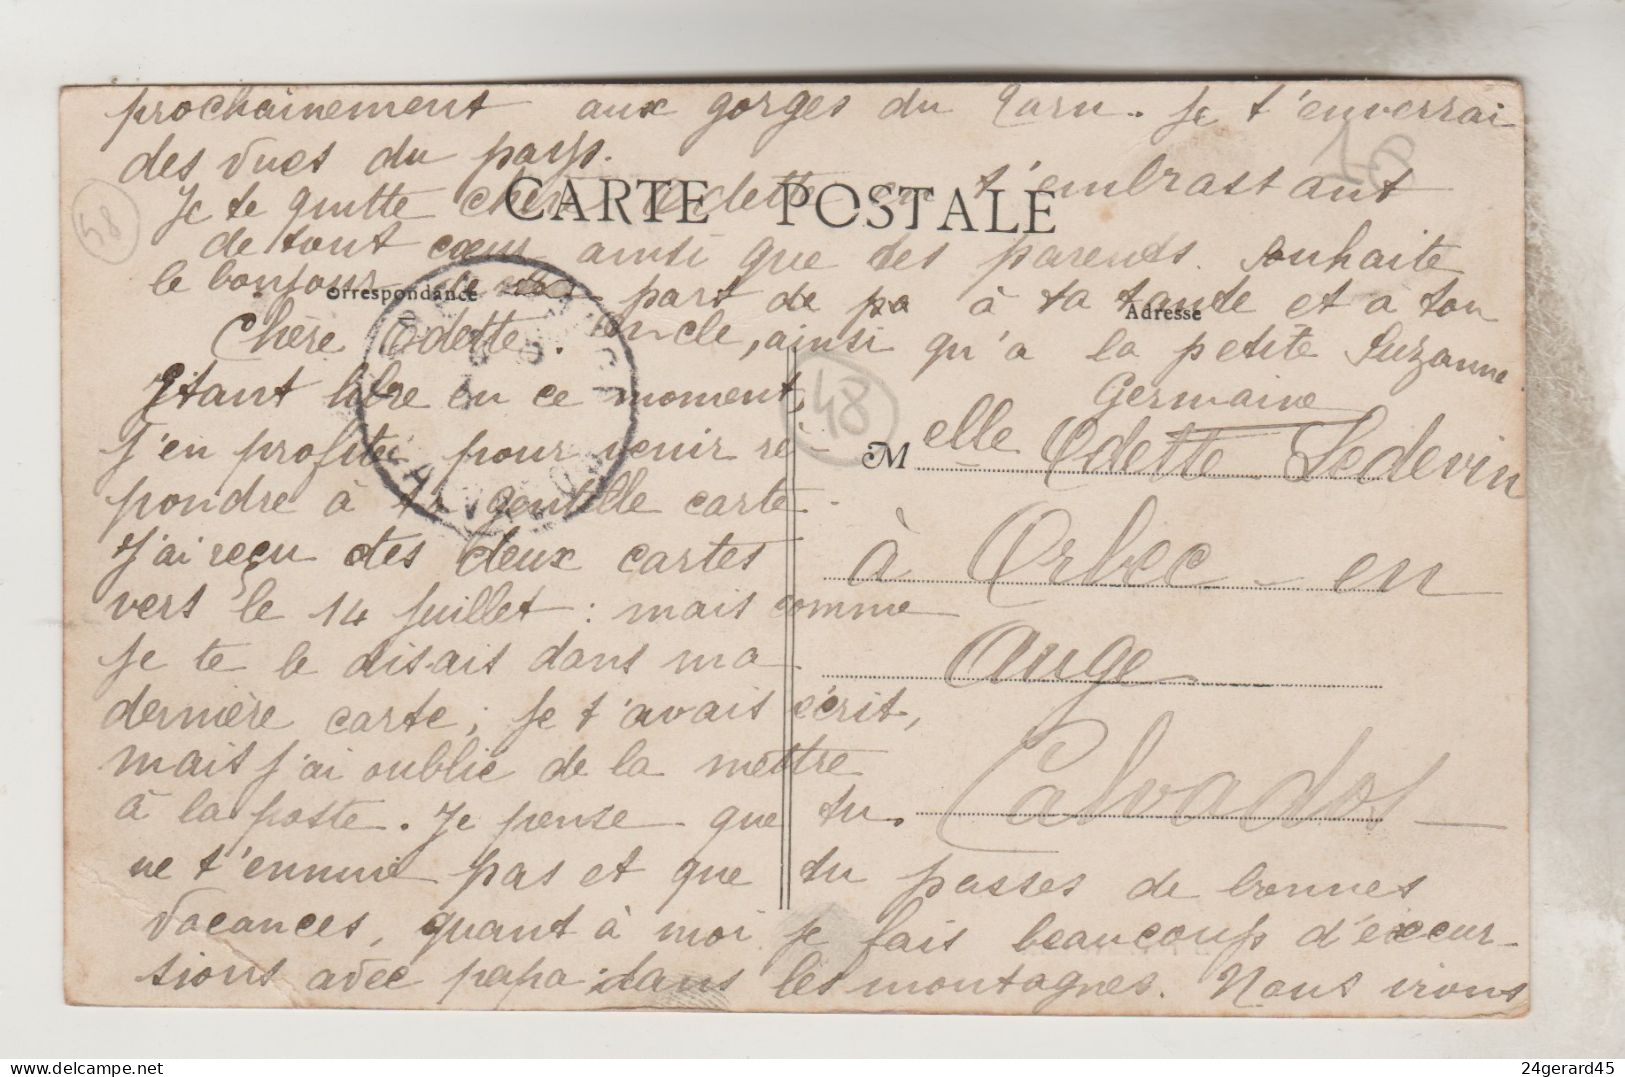 prochainement aux gorges du Tarn. Je t'enverrai
des vues du pays.
CARTE POSTALE
Je te quitte chère Odette en t'embrassant
de tout cœur ainsi que tes parents. Souhaite
le bonjour de la part de pa à ta tante et a ton
Correspondance
Adresse
oncle, ainsi qu'a la petite Suzanne
Germaine
Chère Odette.
Etant libre en ce moment,
j'en profite pour venir ré-
pondre à ta gentille carte.
J'ai reçu tes deux cartes
vers le 14 juillet : mais comme
je te le disais dans ma
dernière carte; je t'avais écrit,
mais j'ai oublié de la mettre
à la poste. Je pense que tu
ne t'ennuie pas et que tu passes de bonnes
vacances, quant à moi je fais beaucoup d'excur-
sions avec papa dans les montagnes. Nous irons
Melle Odette Ledevin
à Orbec-en
Auge
Calvados
CALVADOS
48
48
24gerard45